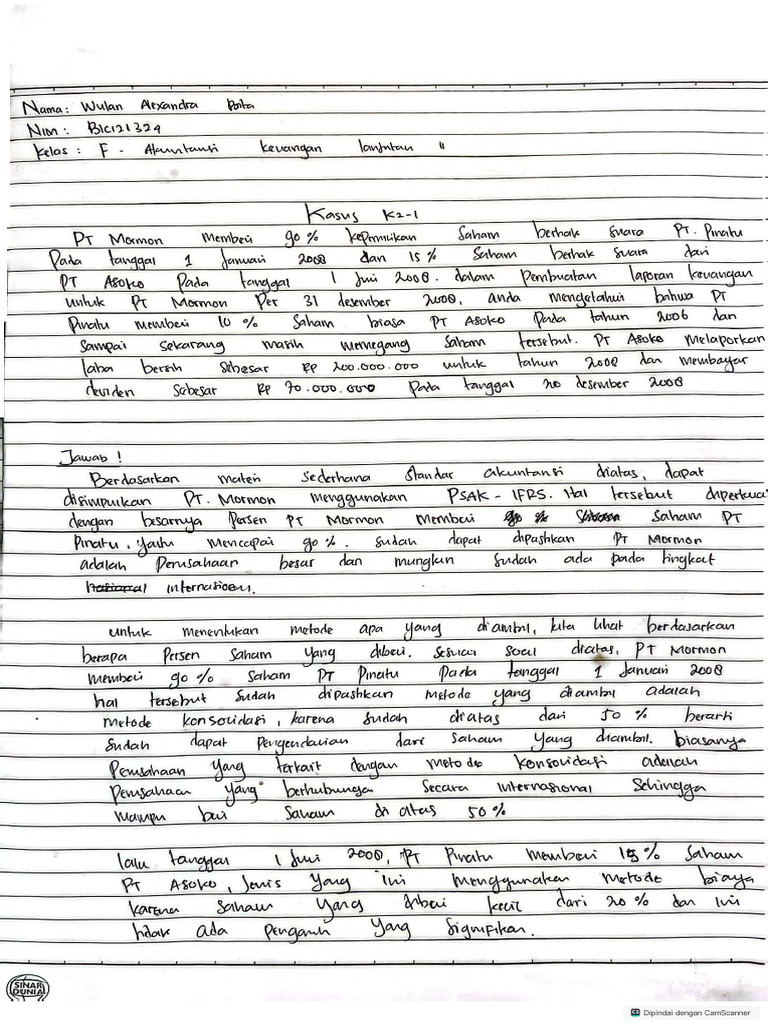 Nama : Wulan Alexandra Poita
Nim : B1C121324
Kelas : F - Akuntansi keuangan lanjutan "
Kasus K2-1
PT Mormon membeli 90 % kepemilikan saham berhak suara PT. Pinatu
Pada tanggal 1 Januari 2008 dan 15 % saham berhak suara dari
PT ASOKO Pada tanggal 1 Juli 2008. dalam Pembuatan laporan keuangan
untuk PT Mormon Per 31 desember 2008, anda mengetahui bahwa PT
Pinatu membeli 10 % saham biasa PT Asoko Pada tahun 2006 dan
sampai sekarang masih memegang saham tersebut. PT Asoko melaporkan
laba bersih sebesar Rp 200.000.000 untuk tahun 2008 dan membayar
deviden sebesar Rp 70.000.000 Pada tanggal 20 desember 2008
Jawab !
Berdasarkan materi sederhana standar akuntansi diatas, dapat
disimpulkan PT. Mormon menggunakan PSAK - IFRS. Hal tersebut diperkua
dengan besarnya Persen PT Mormon membeli 90 % saham PT
Pinatu, yaitu mencapai 90 %. sudah dapat dipastikan PT Mormon
adalah Perusahaan besar dan mungkin sudah ada pada tingkat
nasional internasioen.
untuk menentukan metode apa yang diambil, kita lihat berdasarkan
berapa Persen saham yang dibeli. sesuai soal diatas, PT Mormon
membeli 90 % saham PT Pinatu Pada tanggal 1 Januari 2008
hal tersebut sudah dipastikan metode yang diambil adalah
metode konsolidasi, karena sudah diatas dari 50 % berarti
sudah dapat Pengendalian dari saham yang diambil. biasanya
Perusahaan yang terkait dengan metode konsolidasi adalah
Perusahaan yang berhubunga secara internasional sehingga
mampu beli saham di altas 50 %
lalu tanggal 1 Juli 2008, PT Pinatu membeli 15 % saham
PT ASOKO, Jenis yang ini menggunakan metode biaya
karena saham yang dibeli kecil dari 20 % dan ini
tidak ada Pengaruh yang signifikan.
SINAR
DUNIA
Dipindai dengan CamScanner